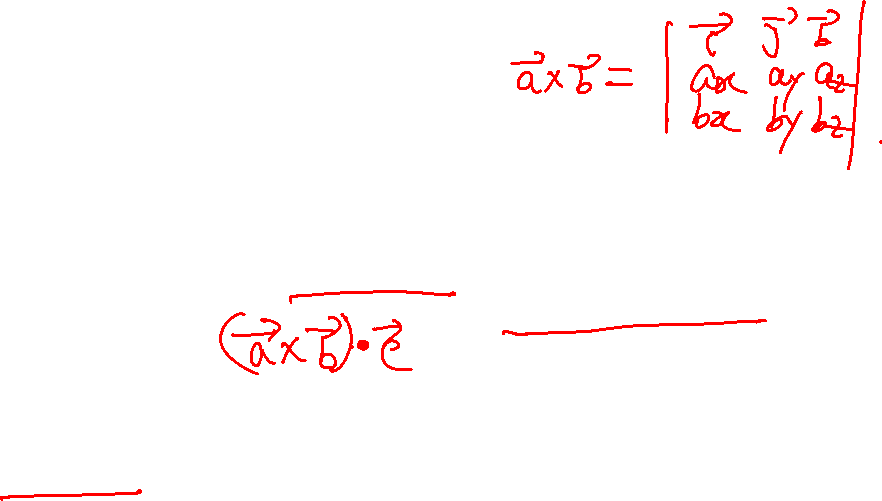 $\vec{a} \times \vec{b} = \begin{vmatrix} \vec{i} & \vec{j} & \vec{b} \\ a_x & a_y & a_z \\ b_x & b_y & b_z \end{vmatrix}$
$(\vec{a} \times \vec{b}) \cdot \vec{c}$